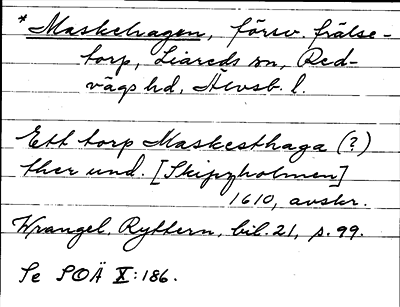 * Maskehagen, försv. frälse-
torp, Liareds sn, Red-
vägs hd, Älvsb. l.
Ett torp Maskesthaga (?)
ther und. [Skipzholmen]
1610, avskr.
Wrangel, Ryttern, bil. 21, s. 99.
Se SOÄ X:186.